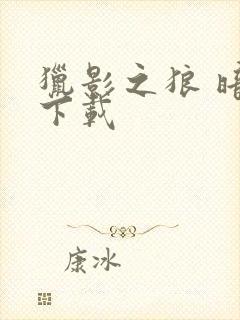 獵影之狼 暗
下載
康冰